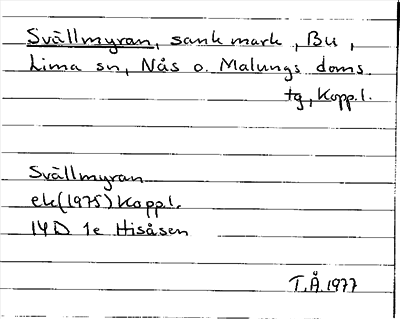 Svällmyran, sank mark, Bu,
Lima sn, Nås o. Malungs doms.
tg, Kopp.l.
Svällmyran
ek(1975)Kopp.l.
14D 1e Hisåsen
T.Å.1977